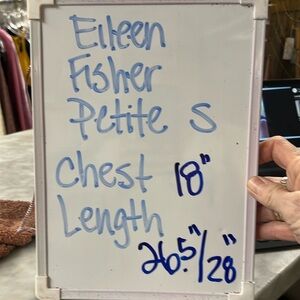 Eileen
Fisher
Petite S
Chest 18"
Length
26.5"/28"